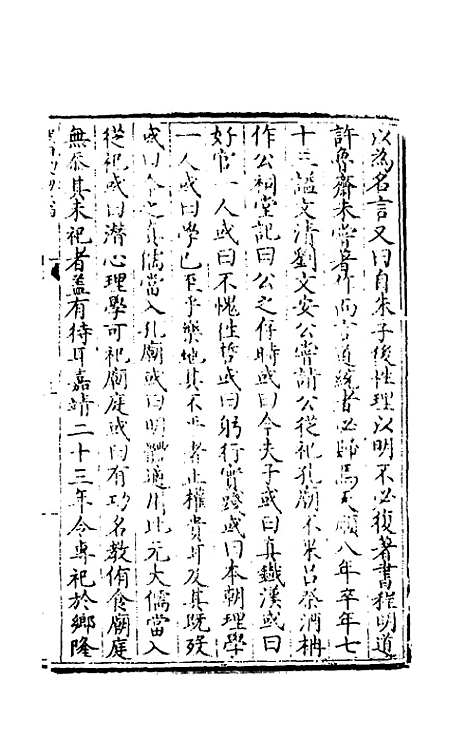 以為名言又曰自朱子後性理以明不必復著書程明道
許魯齋未嘗著作而言道統者必歸焉天順八年卒年七
十三謚文清劉文安公嘗請公從祀孔廟不果呂祭酒柟
作公祠堂記曰公之存時或曰今夫子或曰真鐵漢或曰
好官一人或曰不愧往哲或曰躬行實踐或曰本朝理學
一人或曰學已至乎樂地其不平者止權貴耳及其既歿
或曰今之真儒當入孔廟或曰明體適用比元大儒當入
從祀或曰潛心理學可祀廟庭或曰有功名教侑食廟庭
無忝其未祀者蓋有待耳嘉靖二十三年令專祀於鄉隆